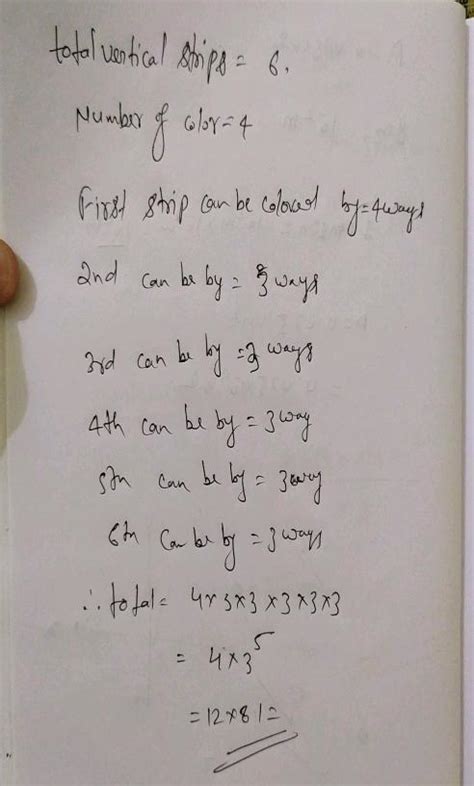 total vertical strips = 6.
Number of color = 4
First strip can be colored by = 4 ways
2nd can be by = 3 ways
3rd can be by = 3 ways
4th can be by = 3 way
5th can be by = 3 way
6th can be by = 3 ways
∴ total = 4×3×3×3×3×3
= 4×3⁵
= 12×81 =